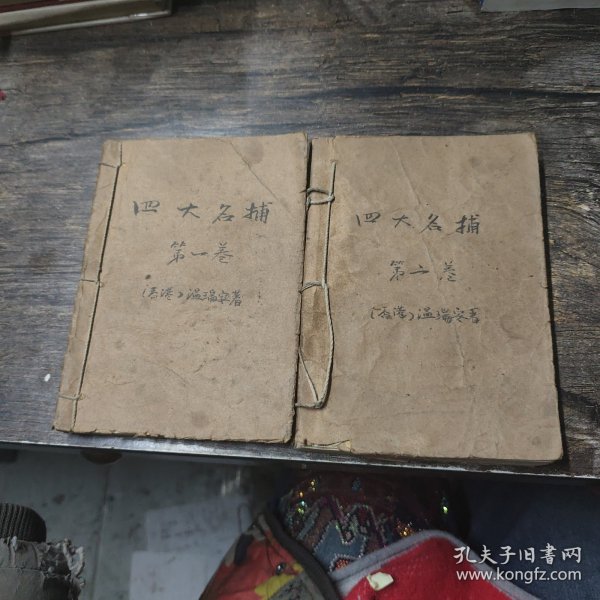 四大名捕
第一卷
(香港)温瑞安著
四大名捕
第二卷
(香港)温瑞安著
孔夫子旧書网
www.kongfz.com